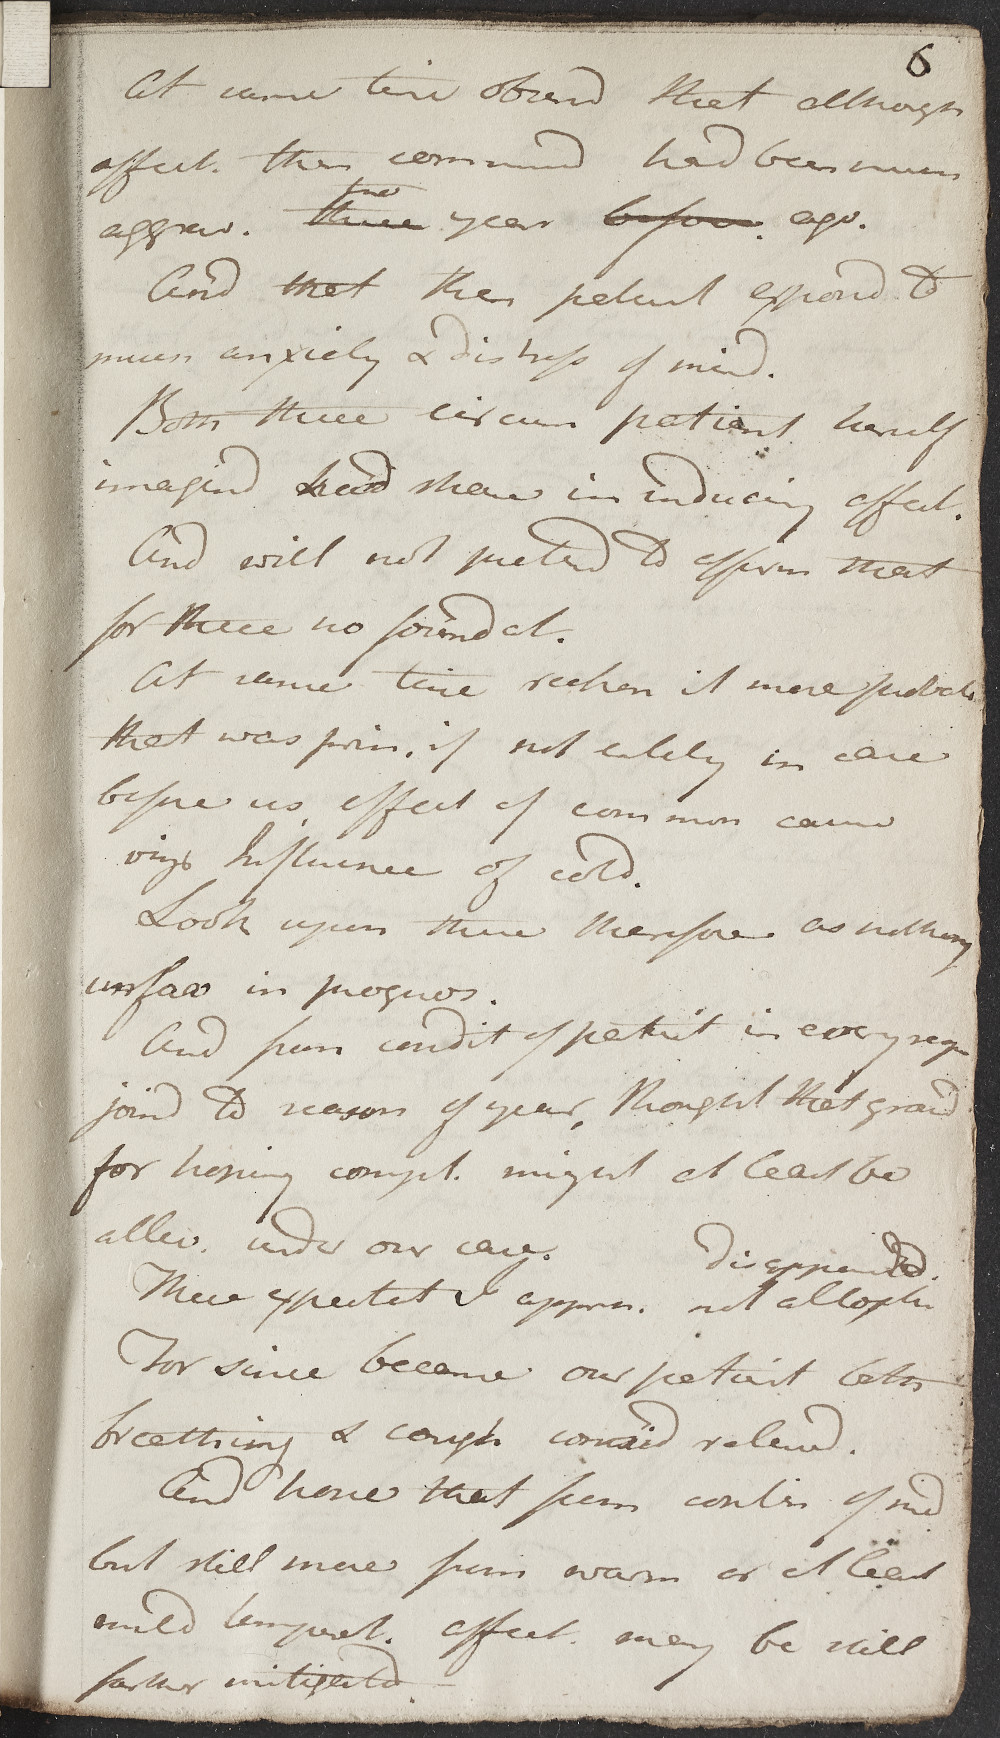 6
At same time observd that although
affect. then commencd had been much
aggrav. three two years before. ago.
And that then patient exposd to
much anxiety & distress of mind.
Both these circum patient herself
imagind had share in inducing affect.
And will not pretend to affirm that
for these no foundat.
At same time reckon it more probable
that was prin. if not solely in case
before us effect of common cause
vizt Influence of cold.
Look upon these therefore as nothing
unfav in prognos.
And from condit of patient in every resp
joind to season of year, thought that ground
for hoping compl. might at least be
allev. under our care.
These expectat I apprn. not altogether disappointed.
For since became our patient both
breathing & cough considd relievd.
And hope that from contin of med
but still more from warm or at least
mild temperat. affect. may be still
farther mitigated.